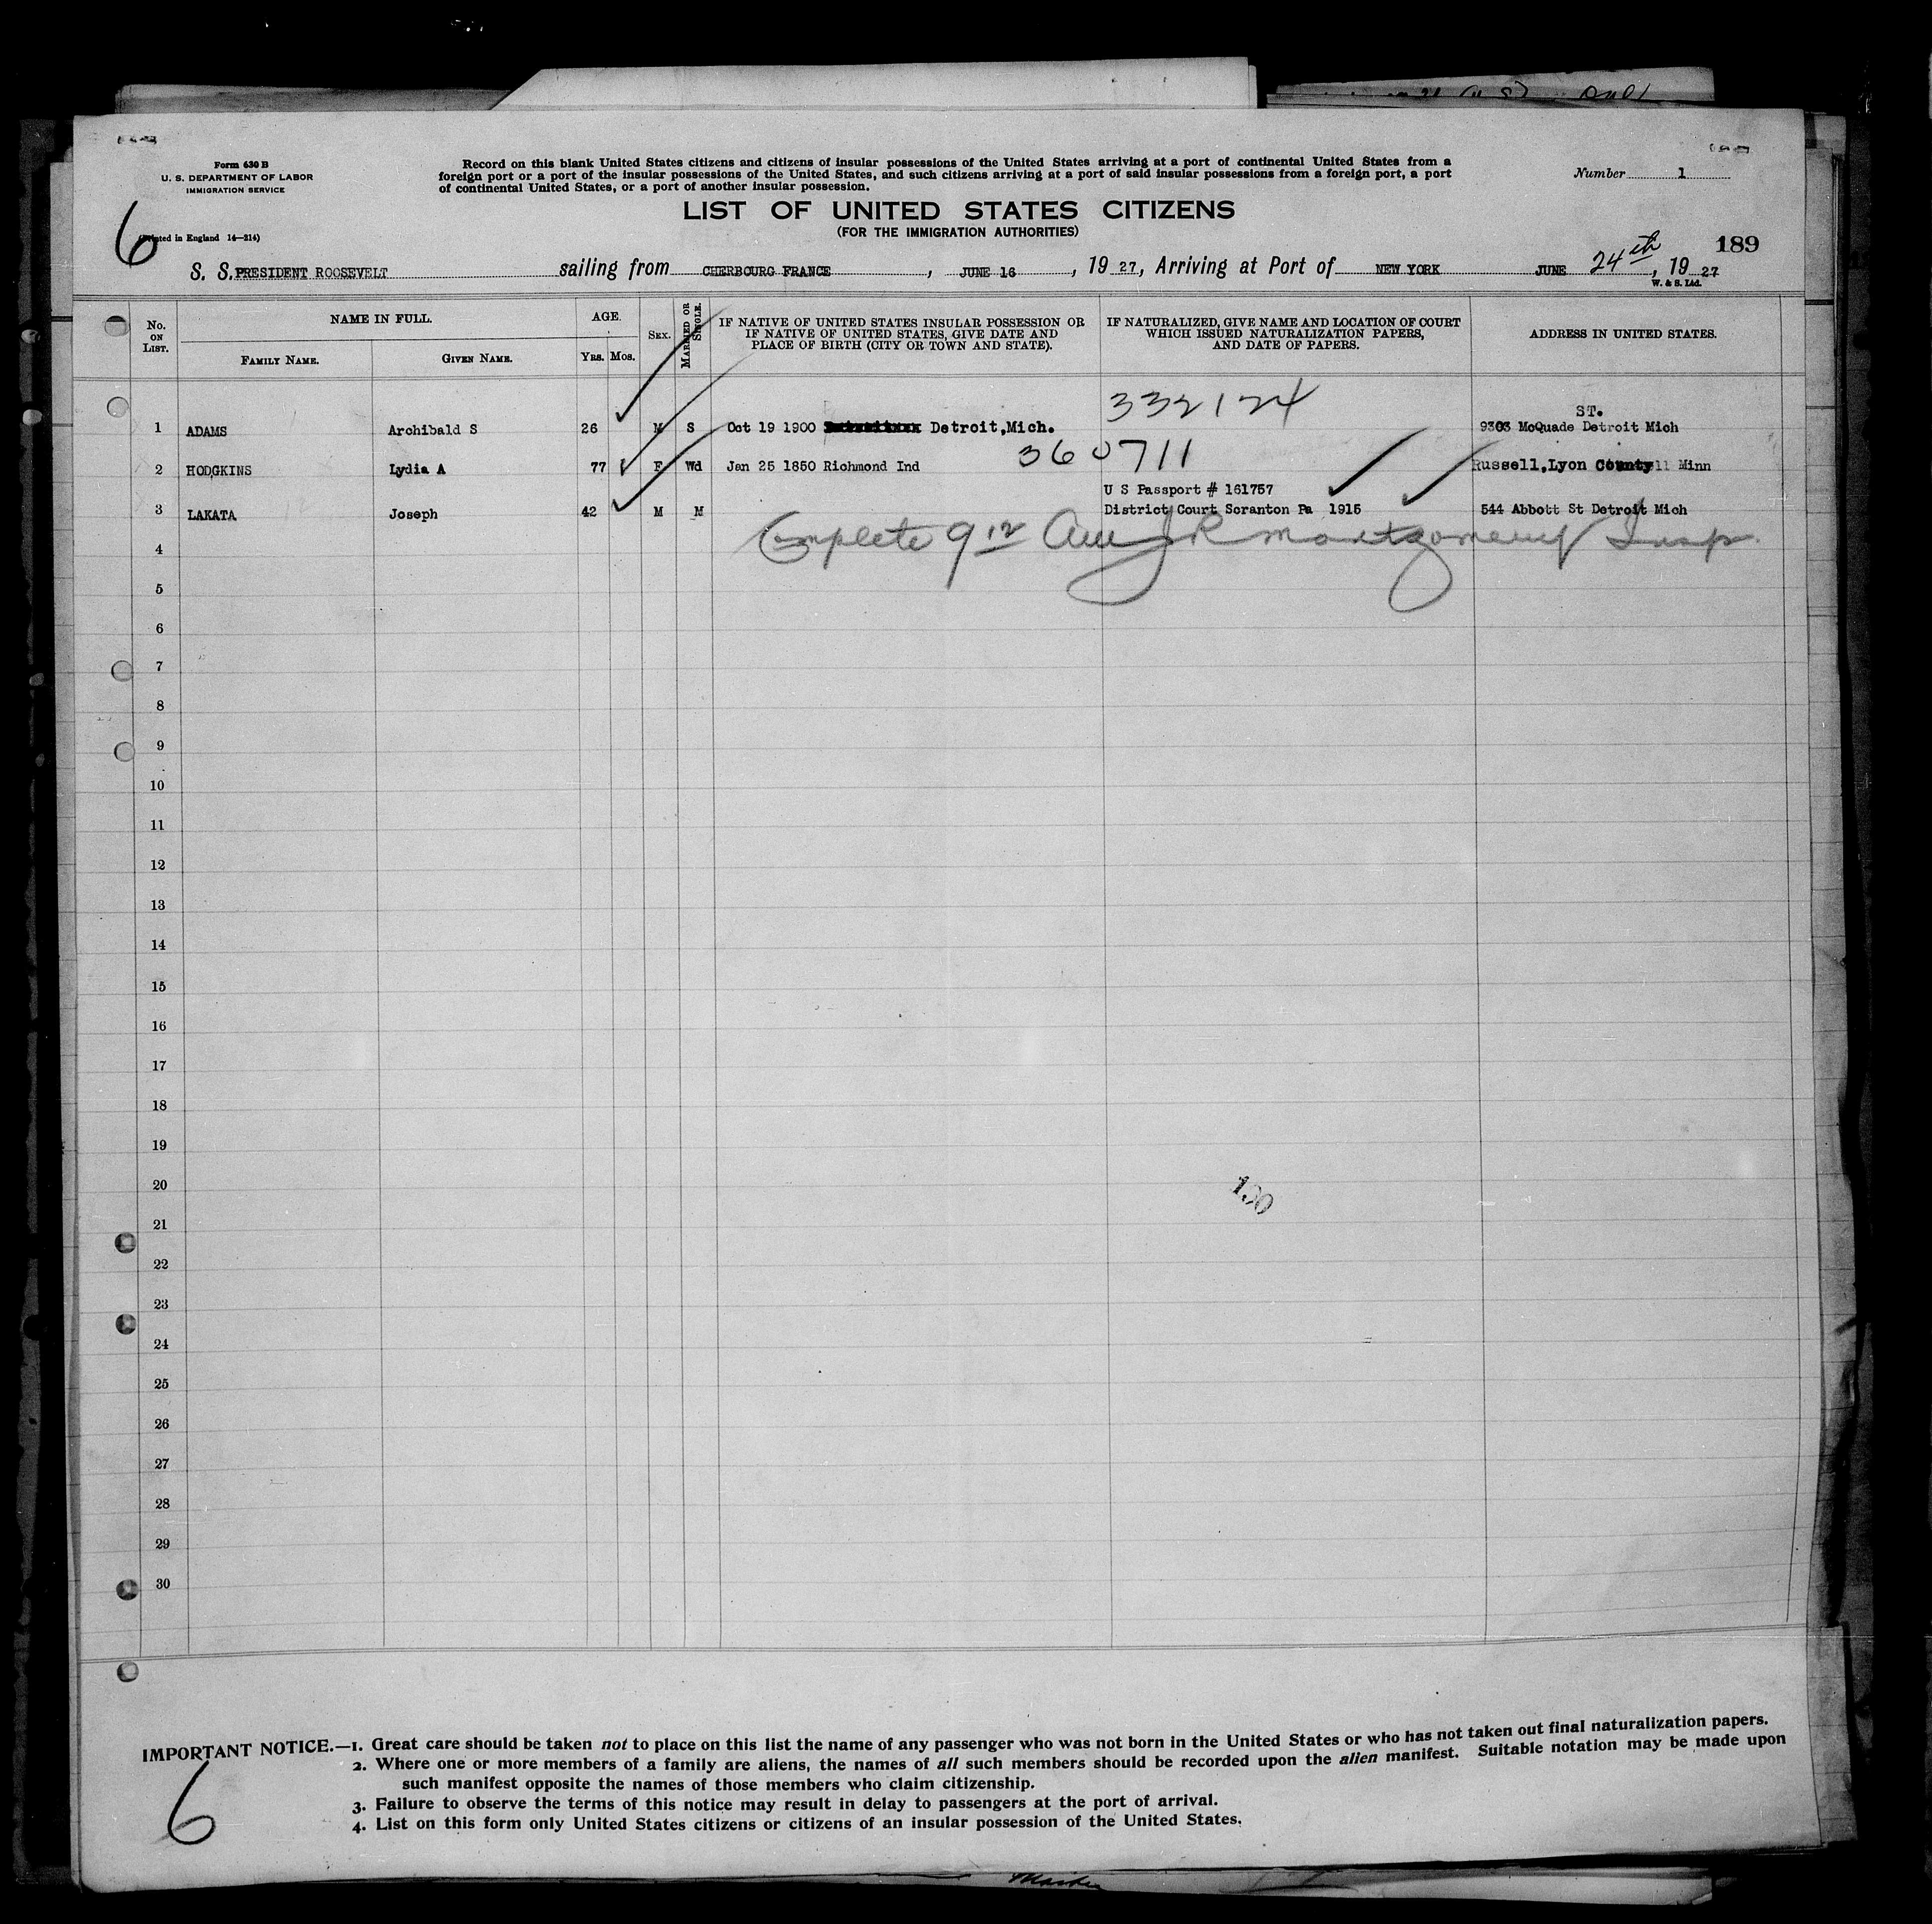 Form 630 B
U. S. DEPARTMENT OF LABOR
IMMIGRATION SERVICE
Record on this blank United States citizens and citizens of insular possessions of the United States arriving at a port of continental United States from a
foreign port or a port of the insular possessions of the United States, and such citizens arriving at a port of said insular possessions from a foreign port, a port
of continental United States, or a port of another insular possession.
Number 1
LIST OF UNITED STATES CITIZENS
(FOR THE IMMIGRATION AUTHORITIES)
6
in England 14—214)
189
S. S. PRESIDENT ROOSEVELT sailing from CHERBOURG FRANCE, JUNE 16, 19 27, Arriving at Port of NEW YORK JUNE 24th, 19 27
W. & S. Ltd.
No. ON LIST.
NAME IN FULL.
FAMILY NAME.
GIVEN NAME.
AGE.
YRS.
MOS.
SEX.
MARRIED OR SINGLE.
IF NATIVE OF UNITED STATES INSULAR POSSESSION OR
IF NATIVE OF UNITED STATES, GIVE DATE AND
PLACE OF BIRTH (CITY OR TOWN AND STATE).
IF NATURALIZED, GIVE NAME AND LOCATION OF COURT
WHICH ISSUED NATURALIZATION PAPERS,
AND DATE OF PAPERS.
ADDRESS IN UNITED STATES.
332124
ST.
1 ADAMS Archibald S 26 M S Oct 19 1900 Detroit,Mich. 9303 McQuade Detroit Mich
360711
2 HODGKINS Lydia A 77 F Wd Jan 25 1850 Richmond Ind Russell,Lyon County Minn
U S Passport # 161757
3 LAKATA Joseph 42 M M District Court Scranton Pa 1915 544 Abbott St Detroit Mich
Complete JR Montgomery Insp.
4
5
6
7
8
9
10
11
12
13
14
15
16
17
18
19
20
190
21
22
23
24
25
26
27
28
29
30
IMPORTANT NOTICE.—1. Great care should be taken not to place on this list the name of any passenger who was not born in the United States or who has not taken out final naturalization papers.
2. Where one or more members of a family are aliens, the names of all such members should be recorded upon the alien manifest. Suitable notation may be made upon
such manifest opposite the names of those members who claim citizenship.
3. Failure to observe the terms of this notice may result in delay to passengers at the port of arrival.
4. List on this form only United States citizens or citizens of an insular possession of the United States.
6